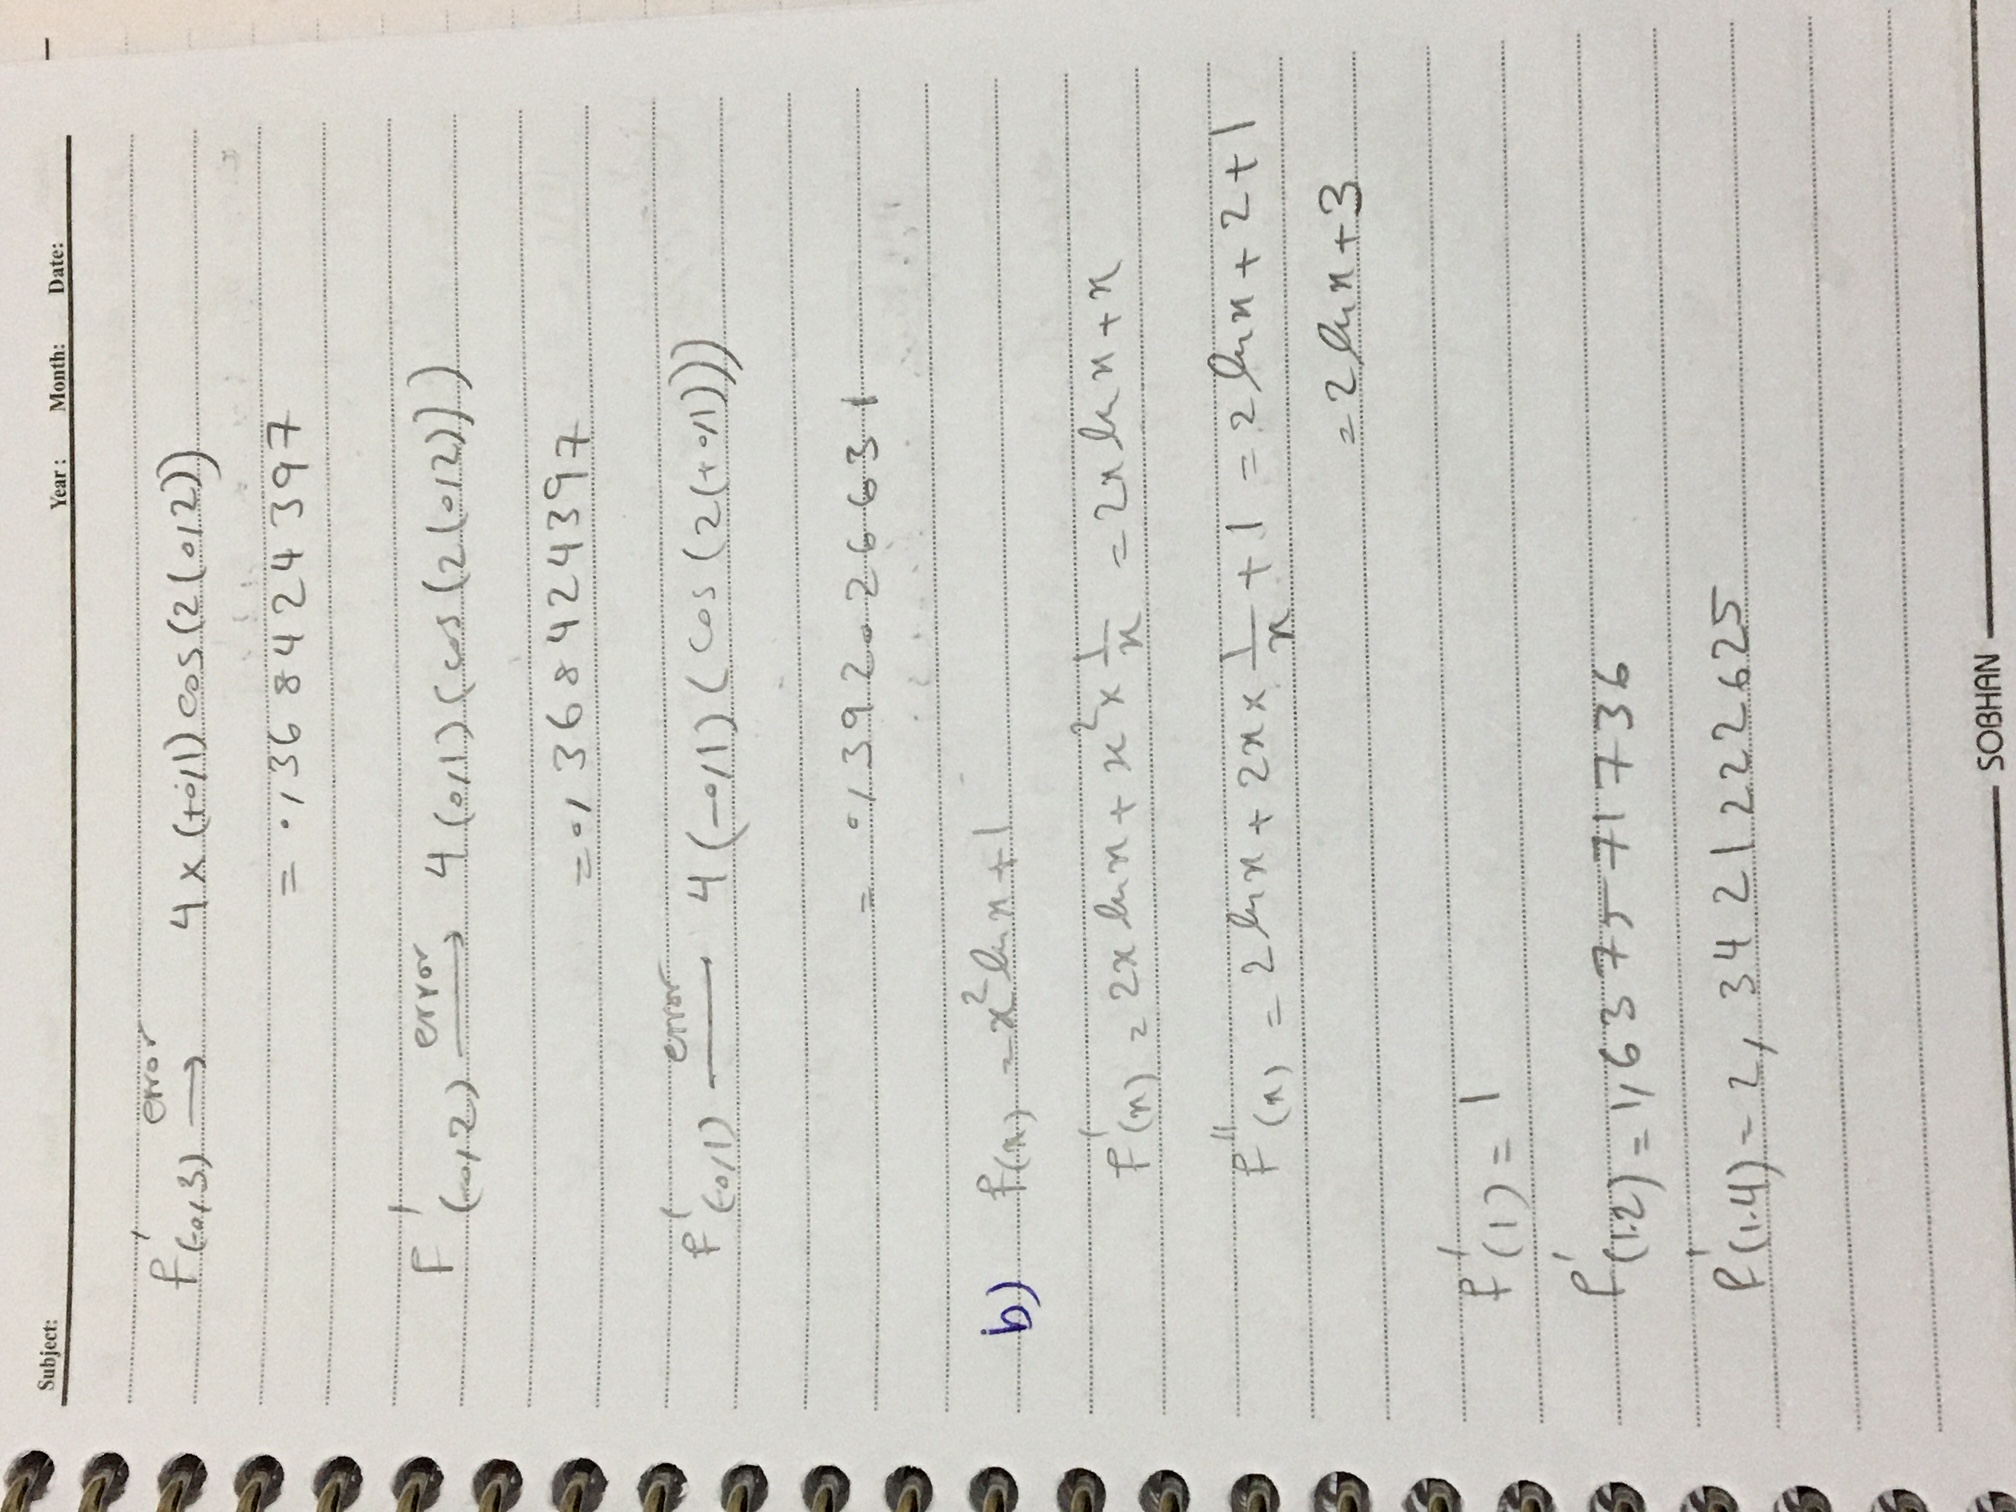 Subject:
Year : Month: Date:
f'(-0,3) error → 4 x (+0,1) cos(2(0,2))
= 0,368424397
F'(-0,2) error → 4 (0,1) (cos (2(0,2)))
= 0,368424397
f'(-0,1) error — 4 (-0,1) (cos (2(+0,1)))
= 0,392026631
b) f(x) = x² ln x + 1
f'(x) = 2x ln x + x² x 1/x = 2x ln x + x
f''(x) = 2 ln x + 2x x 1/x + 1 = 2 ln x + 2 + 1
= 2 ln x + 3
f'(1) = 1
f'(1.2) = 1,637571736
f'(1.4) = 2,3421222625
SOBHAN